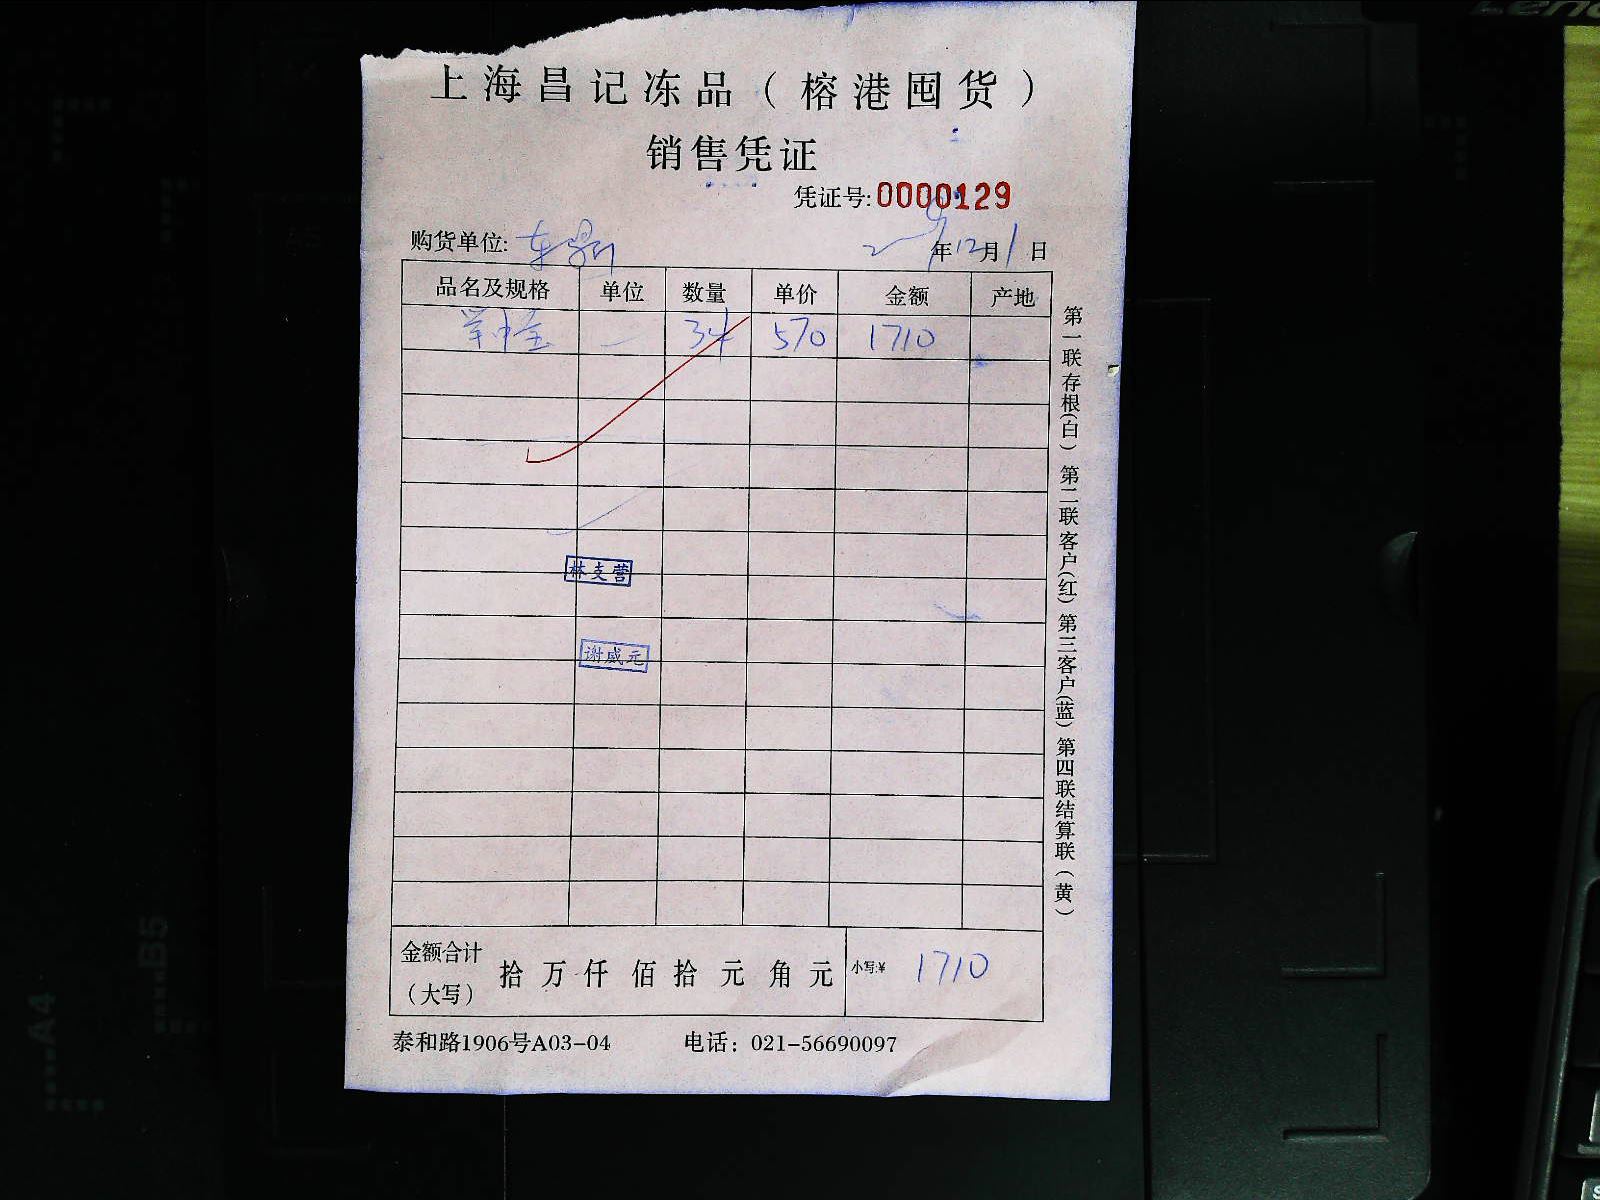 上海昌记冻品（榕港囤货）
销售凭证
凭证号:0000129
购货单位: 年12月1日
品名及规格 单位 数量 单价 金额 产地
一 3件 570 1710
林支营
谢威元
金额合计（大写） 拾 万 仟 佰 拾 元 角 元 小写:¥ 1710
泰和路1906号A03-04 电话：021-56690097
第一联存根(白) 第二联客户(红) 第三客户(蓝) 第四联结算联(黄)
Leno
A4
B5
A5